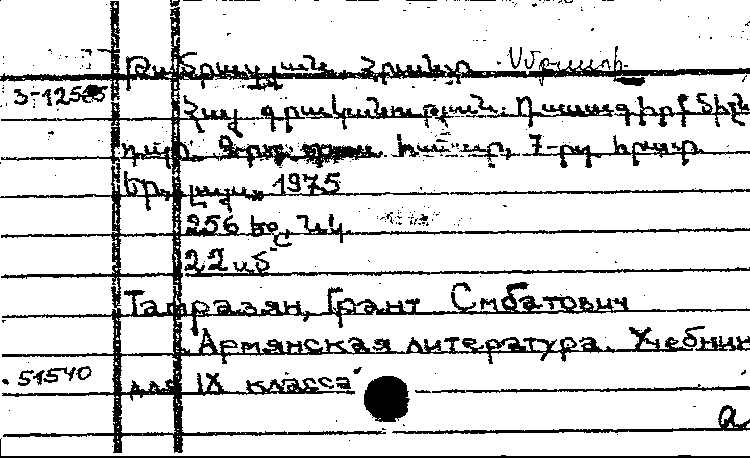 Թամրազյան, Հրանտ Սմբատի
3-12585
Հայ գրականություն. Դասագիրք 9-րդ
դաս. համար, 7-րդ հրատ.
Եր., Լույս, 1975
256 էջ, նկ.
22 սմ
Тамразян, Грант Смбатович
Армянская литература. Учебник
51540 для IX класса
а